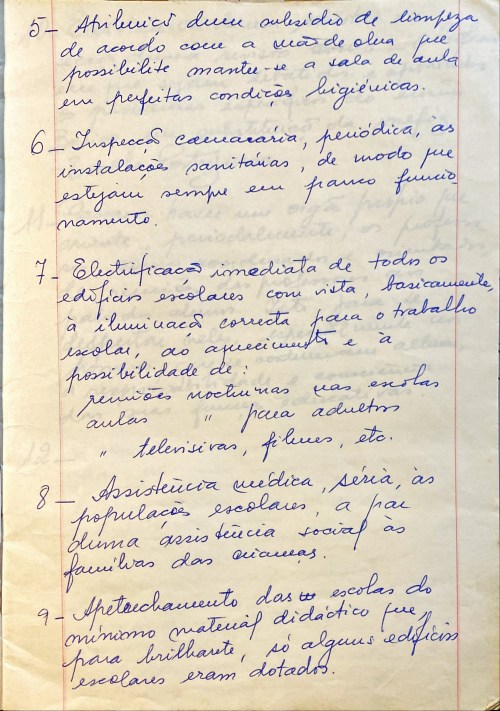 5 - Atribuição duum subsídio de limpeza
de acordo com a mão de obra que
possibilite manter-se a sala de aula
em perfeitas condições higiénicas.
6 - Inspecção camarária, periódica, às
instalações sanitárias, de modo que
estejam sempre em franco funcio-
namento.
7 - Electrificação imediata de todos os
edifícios escolares com vista, basicamente,
à iluminação correcta para o trabalho
escolar, ao aquecimento e à
possibilidade de:
reuniões nocturnas nas escolas
aulas " para adultos
" televisivas, filmes, etc.
8 - Assistência médica, séria, às
populações escolares, a par
duma assistência social às
famílias das crianças.
9 - Apetrechamento das escolas do
mínimo material didáctico que,
para brilharete, só alguns edifícios
escolares eram dotados.